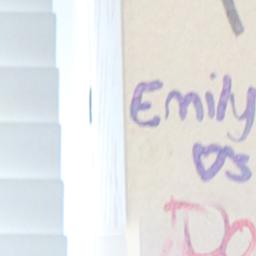 Emily
♡s
Do